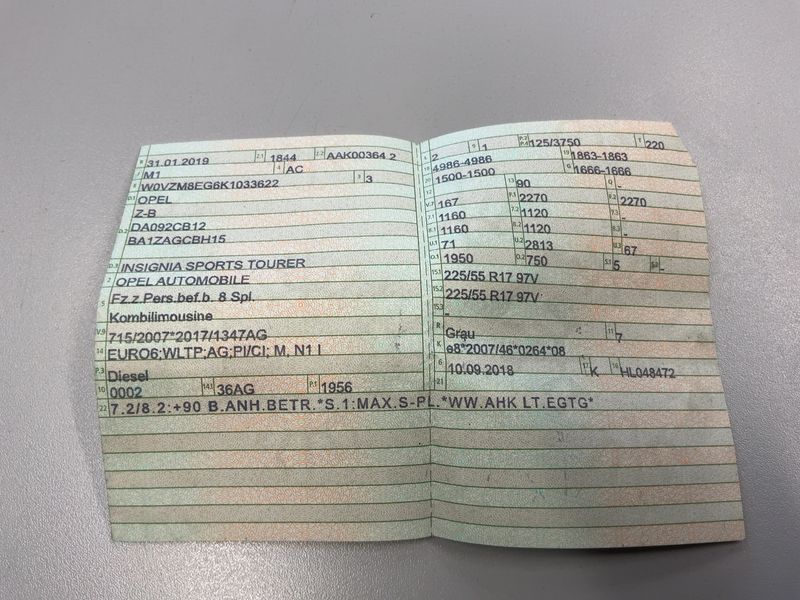 B 31.01.2019 2.1 1844 2.2 AAK00364 2
J M1 4 AC
E W0VZM8EG6K1033622 3 3
D.1 OPEL
Z-B
D.2 DA092CB12
BA1ZAGCBH15
D.3 INSIGNIA SPORTS TOURER
2 OPEL AUTOMOBILE
5 Fz.z.Pers.bef.b. 8 Spl.
Kombilimousine
V.9 715/2007*2017/1347AG
14 EURO6;WLTP;AG;PI/CI; M, N1 I
P.3 Diesel
10 0002 14.1 36AG P.1 1956
L 2 9 1 P.2 P.4 125/3750 T 220
18 4986-4986 19 1863-1863
20 1500-1500 G 1666-1666
12 - 13 90 Q -
V.7 167 F.1 2270 F.2 2270
7.1 1160 7.2 1120 7.3 -
8.1 1160 8.2 1120 8.3 -
U.1 71 U.2 2813 U.3 67
O.1 1950 O.2 750 S.1 5 S.2 -
15.1 225/55 R17 97V
15.2 225/55 R17 97V
15.3 -
R Grau 11 7
K e8*2007/46*0264*08
6 10.09.2018 17 K 16 HL048472
21
22 7.2/8.2:+90 B.ANH.BETR.*S.1:MAX.S-PL.*WW.AHK LT.EGTG*